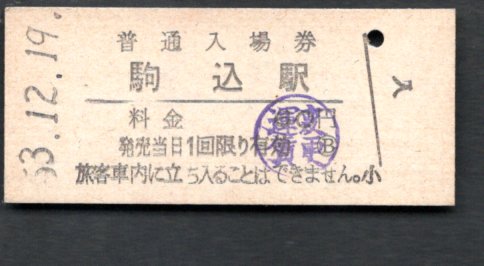 63.12.19.
普通入場券
駒込駅
料金 円
発売当日1回限り有効 Ⓑ
旅客車内に立ち入ることはできません。小
入
運賃変更